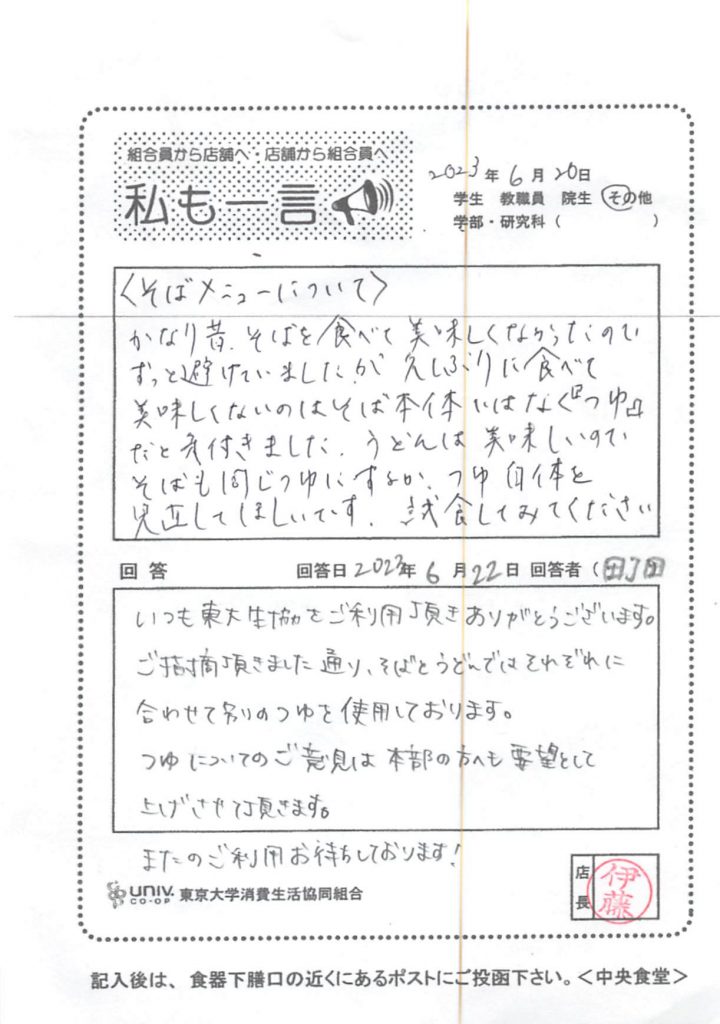 組合員から店舗へ・店舗から組合員へ
私も一言
2023年6月20日
学生 教職員 院生 その他
学部・研究科( )
〈そばメニューについて〉
かなり昔、そばを食べて美味しくなかったので
ずっと避けていましたが久しぶりに食べて
美味しくないのはそば本体ではなく『つゆ』
だと気付きました。うどんは美味しいので
そばも同じつゆにするか、つゆ自体を
見直してほしいです。試食してみてください
回答 回答日2023年6月22日 回答者(
いつも東大生協をご利用頂きありがとうございます。
ご指摘頂きました通り、そばとうどんではそれぞれに
合わせて別のつゆを使用しております。
つゆについてのご意見は本部の方へも要望として
上げさせて頂きます。
またのご利用お待ちしております!
店長 伊藤
UNIV. CO-OP 東京大学消費生活協同組合
記入後は、食器下膳口の近くにあるポストにご投函下さい。<中央食堂>